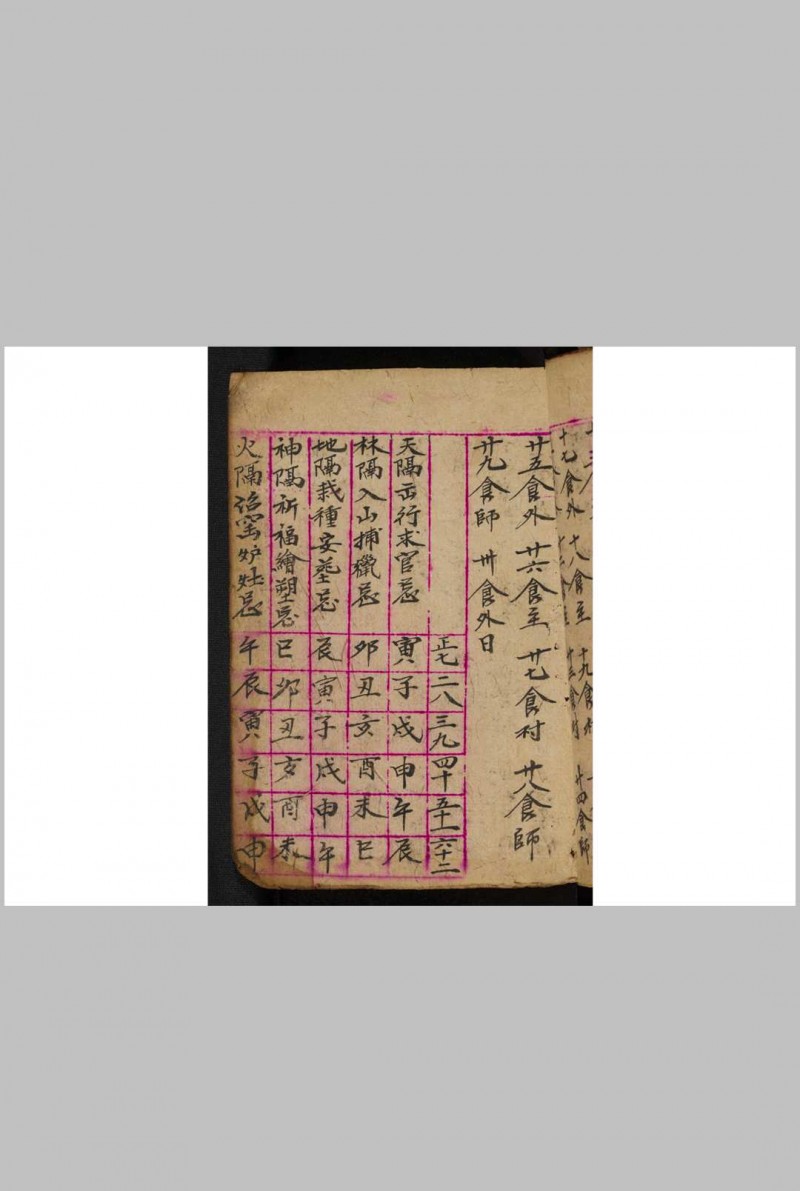 十七食外 十八食主 十九食村
廿四食師
廿五食外 廿六食主 廿七食村 廿八食師
廿九食師 卅食外日
正七 二八 三九 四十 五十一 六十二
天隔出行求官忌 寅 子 戌 申 午 辰
林隔入山捕獵忌 卯 丑 亥 酉 未 巳
地隔栽種安塟忌 辰 寅 子 戌 申 午
神隔祈福繪塑忌 巳 卯 丑 亥 酉 未
火隔窑炉灶忌 午 辰 寅 子 戌 申